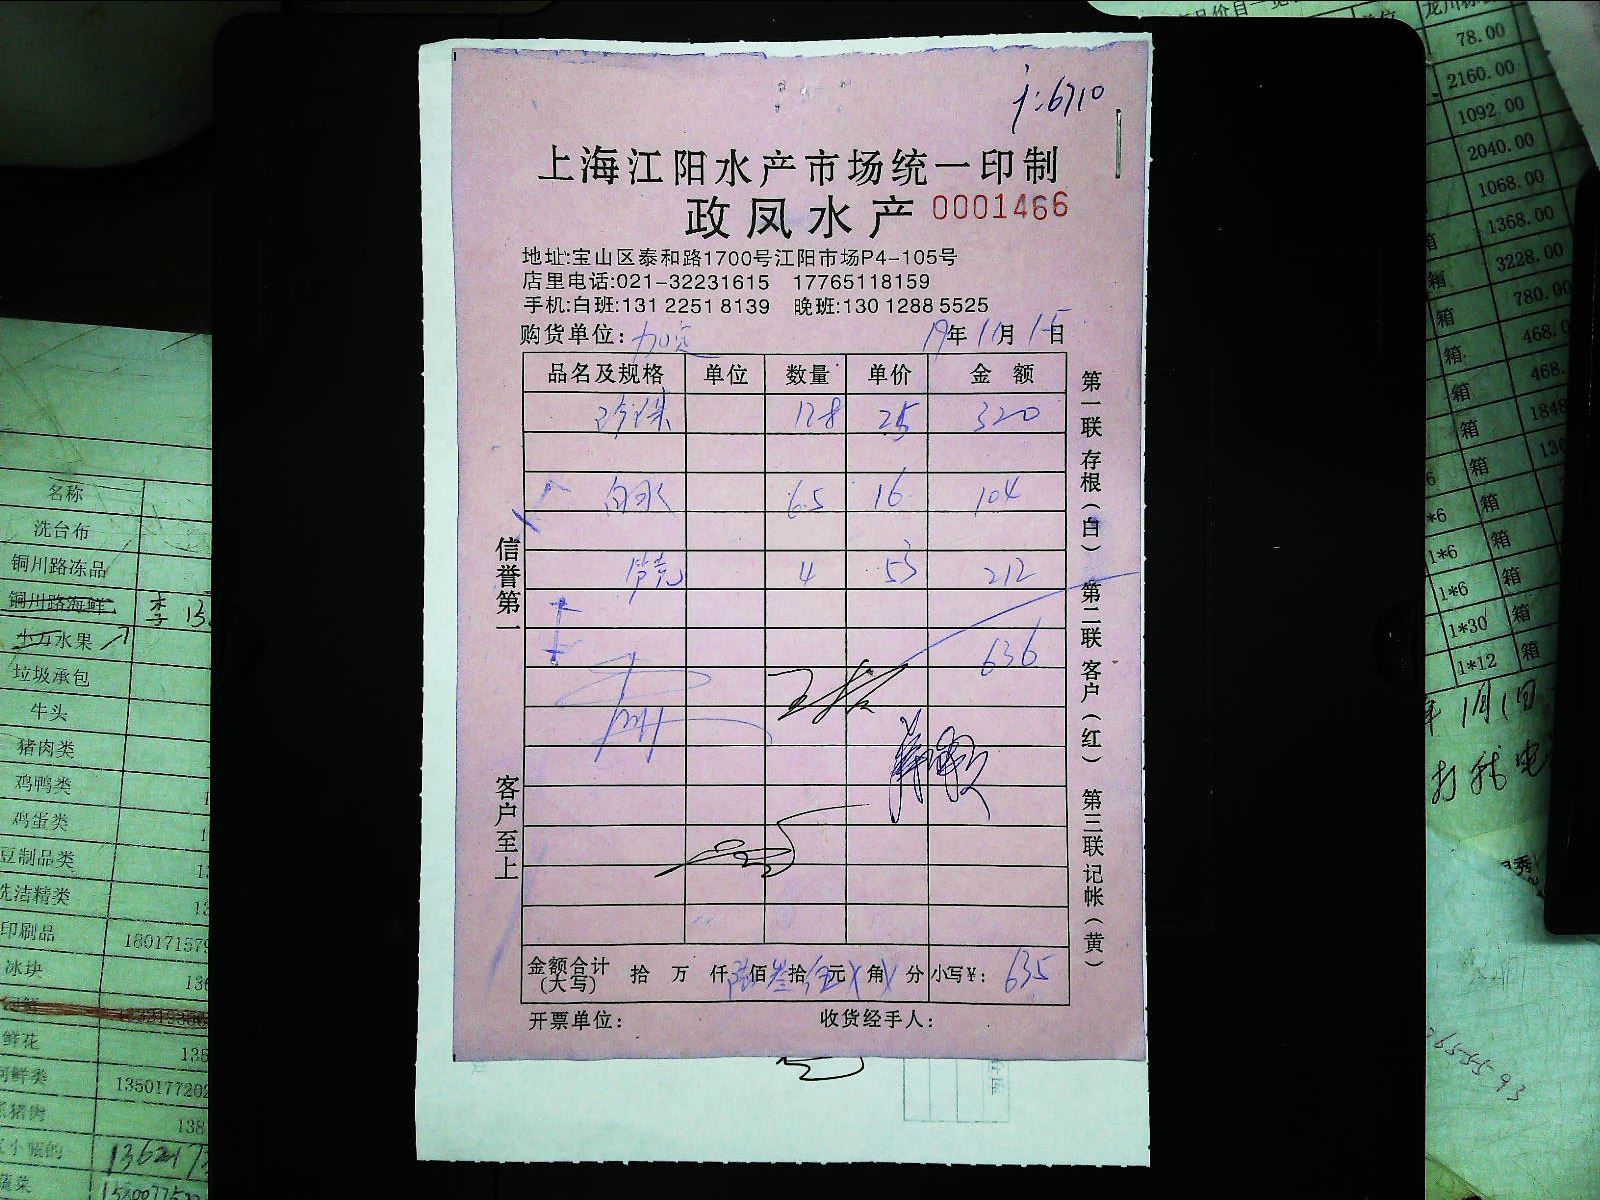 j:6710
上海江阳水产市场统一印制
政凤水产 0001466
地址:宝山区泰和路1700号江阳市场P4-105号
店里电话:021-32231615 17765118159
手机:白班:131 2251 8139 晚班:130 1288 5525
购货单位: 19年11月15日
品名及规格 单位 数量 单价 金额
珍珠 12.8 25 320
白水 6.5 16 104
4 53 212
636
金额合计(大写) 拾 万 仟陆佰叁拾伍元 角 分 小写¥: 635
开票单位: 收货经手人:
信誉第一
客户至上
第一联 存根(白) 第二联 客户(红) 第三联 记帐(黄)
名称
洗台布
铜川路冻品
铜川路海鲜 李
小方水果
垃圾承包
牛头
猪肉类
鸡鸭类
鸡蛋类
豆制品类
洗洁精类
印刷品
冰块
鲜花
78.00
2160.00
1092.00
2040.00
1068.00
箱 1368.00
箱 3228.00
箱 780.00
箱 468.0
箱 468.
箱 1848
箱 136
1*6 箱
1*6 箱
1*30 箱
1*12 箱
年1月1日
打我电